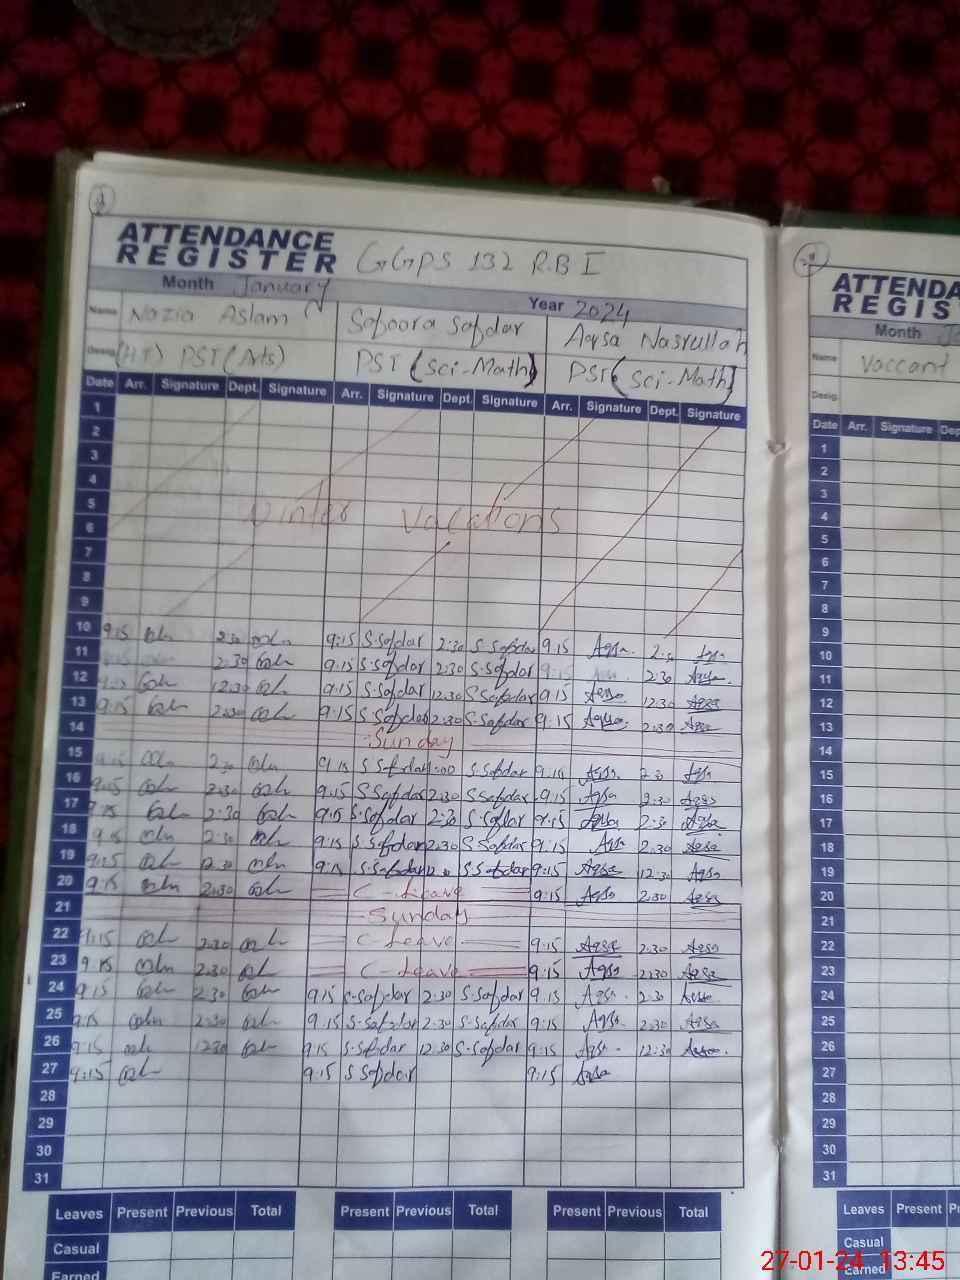 ATTENDANCE
REGISTER GGPS 132 R.B I
Month January Year 2024
Name Nazia Aslam Safoora Safdar Aqsa Nasrullah
Desig. (H.T) PST (Arts) PST (Sci-Math) PST (Sci-Math)
Date Arr. Signature Dept. Signature Arr. Signature Dept. Signature Arr. Signature Dept. Signature
1
2
3
4
5
Winter Vacations
6
7
8
9
10 9:15 2:30 9:15 S.Safdar 2:30 S.Safdar 9:15 Aqsa 2:30
11 2:30 9:15 S.Safdar 2:30 S.Safdar 9:15 2:30 Aqsa
12 12:30 9:15 S.Safdar 12:30 S.Safdar 9:15 Aqsa 12:30 Aqsa
13 9:15 2:30 9:15 S.Safdar 2:30 S.Safdar 9:15 Aqsa 2:30 Aqsa
14 Sunday
15 2:30 9:15 S.Safdar S.Safdar 9:15 Aqsa 2:30 Aqsa
16 9:15 2:30 9:15 S.Safdar 2:30 S.Safdar 9:15 Aqsa 2:30 Aqsa
17 9:15 2:30 9:15 S.Safdar 2:30 S.Safdar 9:15 Aqsa 2:30 Aqsa
18 9:15 2:30 9:15 S.Safdar 2:30 S.Safdar 9:15 Aqsa 2:30 Aqsa
19 9:15 12:30 9:15 S.Safdar S.Safdar 9:15 Aqsa 12:30 Aqsa
20 9:15 2:30 C-Leave 9:15 Aqsa 2:30 Aqsa
21 Sunday
22 9:15 2:30 C-Leave 9:15 Aqsa 2:30 Aqsa
23 9:15 2:30 C-Leave 9:15 Aqsa 2:30 Aqsa
24 9:15 2:30 9:15 S.Safdar 2:30 S.Safdar 9:15 Aqsa 2:30 Aqsa
25 9:15 2:30 9:15 S.Safdar 2:30 S.Safdar 9:15 Aqsa 2:30 Aqsa
26 9:15 12:30 9:15 S.Safdar 12:30 S.Safdar 9:15 Aqsa 12:30 Aqsa
27 9:15 9:15 S.Safdar 9:15 Aqsa
28
29
30
31
Leaves Present Previous Total Present Previous Total Present Previous Total
Casual
Earned
ATTENDA
REGIS
Month
Name Vaccant
Desig.
Date Arr. Signature
1
2
3
4
5
6
7
8
9
10
11
12
13
14
15
16
17
18
19
20
21
22
23
24
25
26
27
28
29
30
31
Leaves Present
Casual
Earned
27-01-24 13:45